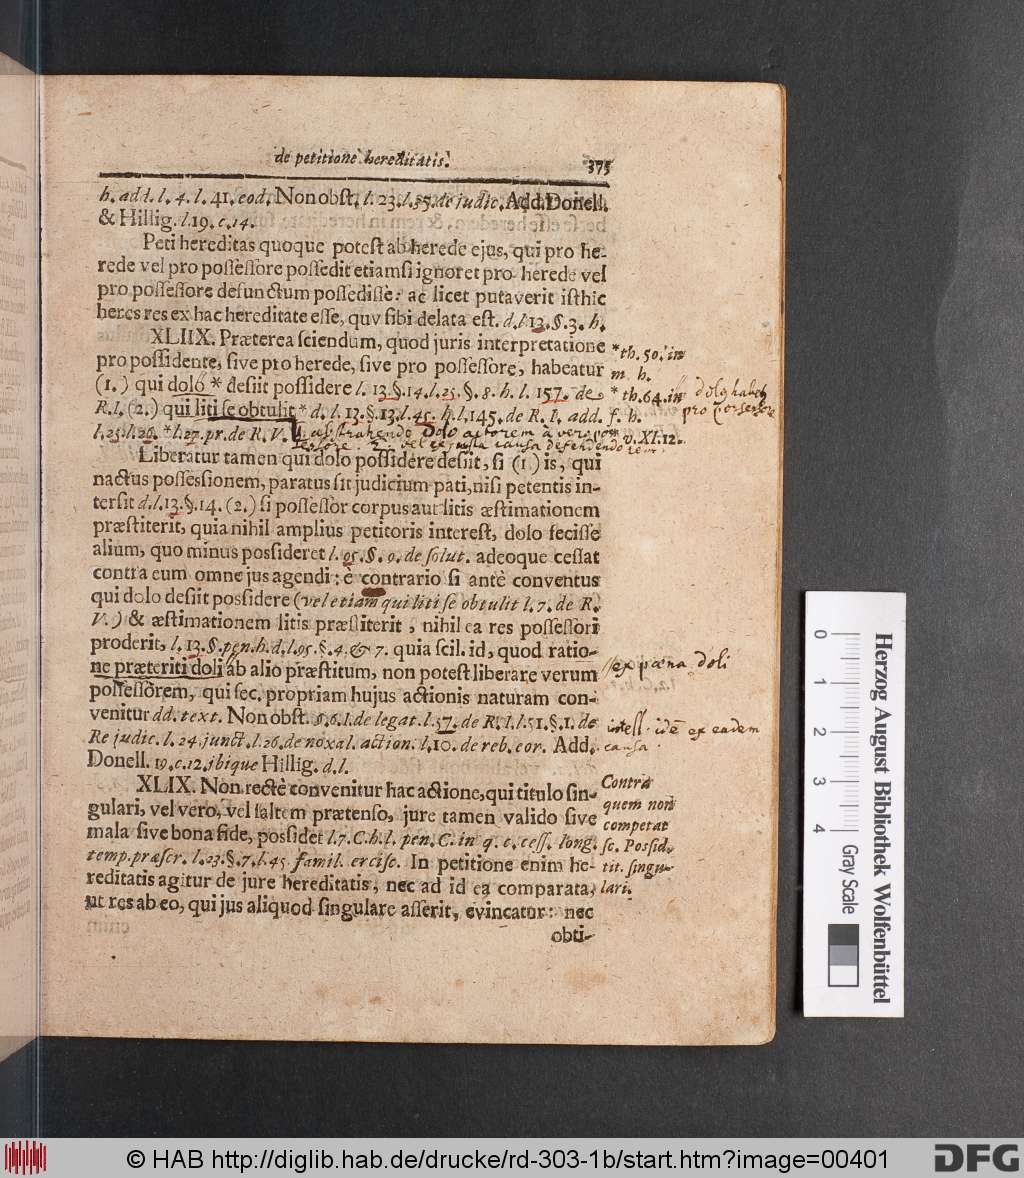 de petitione hereditatis. 375
h. add. l. 4. l. 41. eod. Non obst. l. 23. l. 35. de judic. Add. Donell.
& Hillig. l. 19. c. 14.
Peti hereditas quoque potest ab herede ejus, qui pro he-
rede vel pro possessore possedit etiamsi ignoret pro herede vel
pro possessore defunctum possedisse: ac licet putaverit isthic
heres res ex hac hereditate esse, quv sibi delata est. d. l 13. §. 3. h.
XLIIX. Præterea sciendum, quod juris interpretatione
pro possidente, sive pro herede, sive pro possessore, habeatur
(1.) qui dolo * desiit possidere l. 13. §. 14. l. 25. §. 8. h. l. 157. de
R. I. (2.) qui liti se obtulit * d. l. 13. §. 13. l. 45. h. l. 145. de R. I. add.
l. 25. l. 26. * l. 27. pr. de R. V.
*th. 50. in
m. h.
* th. 64. in
f. h.
v. XI. 12.
dolo habet
pro
dolo actorem a vero
vel ex justa causa defendendo rem
Liberatur tamen qui dolo possidere desiit, si (1) is, qui
nactus possessionem, paratus sit judicium pati, nisi petentis in-
tersit d. l. 13. §. 14. (2.) si possessor corpus aut litis æstimationem
præstiterit, quia nihil amplius petitoris interest, dolo fecisse
alium, quo minus possideret l. 95. §. 9. de solut. adeoque cessat
contra eum omne jus agendi: è contrario si antè conventus
qui dolo desiit possidere (vel etiam qui liti se obtulit l. 7. de R.
V.) & æstimationem litis præstiterit, nihil ea res possessori
proderit, l. 13. §. pen. h. d. l. 95. §. 4. & 7. quia scil. id, quod ratio-
ne præteriti doli ab alio præstitum, non potest liberare verum
possessorem, qui sec. propriam hujus actionis naturam con-
venitur dd. text. Non obst. §. 6. I. de legat. l. 57. de R. I. l. 51. §. 1. de
Re judic. l. 24. junct. l. 26. de noxal. action. l. 10. de reb. cor. Add.
Donell. 19. c. 12. ibique Hillig. d. l.
//ex pœna doli
intell. idē ex eadem
causa.
XLIX. Non rectè convenitur hac actione, qui titulo sin-
gulari, vel vero, vel saltem prætenso, jure tamen valido sive
mala sive bona fide, possidet l. 7. C. h. l. pen. C. in q. c. cess. long.
temp. præscr. l. 23. §. 7. l. 45. famil. ercisc. In petitione enim he-
reditatis agitur de jure hereditatis, nec ad id ea comparata,
ut res ab eo, qui jus aliquod singulare asserit, evincatur: nec
Contra
quem non
competat
sc. Possid.
tit. singu-
lari.
obti-
0 1 2 3 4
Herzog August Bibliothek Wolfenbüttel
Gray Scale
© HAB http://diglib.hab.de/drucke/rd-303-1b/start.htm?image=00401
DFG